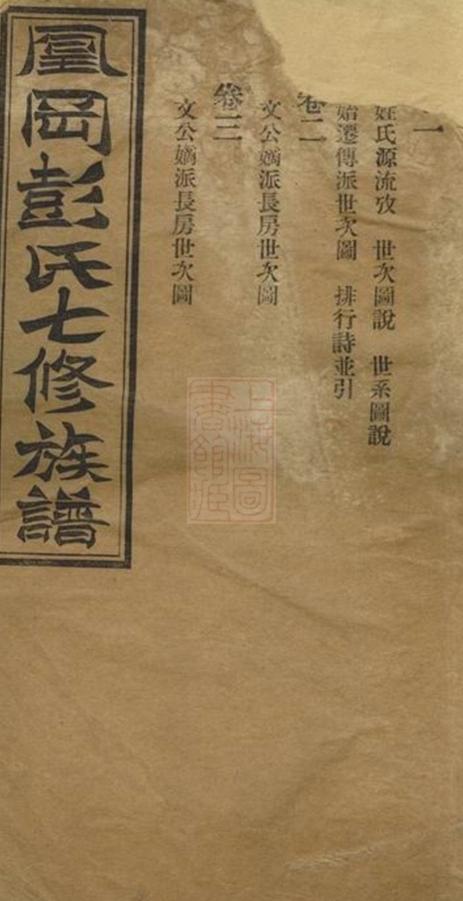 一
姓氏源流攷　世次圖說　世系圖說
始遷傳派世次圖　排行詩並引
卷二
文公嫡派長房世次圖
卷三
文公嫡派長房世次圖
凰岡彭氏七修族譜
上海圖
書館藏